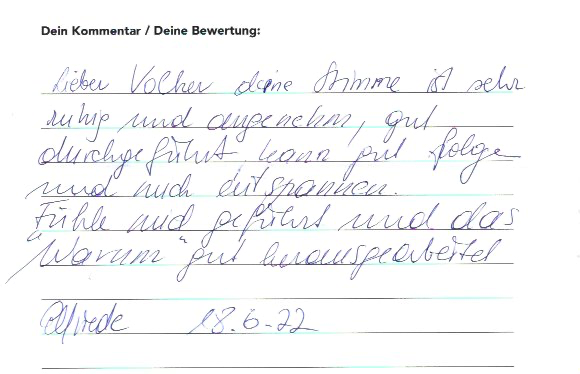 Dein Kommentar / Deine Bewertung:
Lieber Volker deine Stimme ist sehr
ruhig und angenehm, gut
durchgeführt, kann gut folge
und mich entspannen.
Fühle mich geführt und das
"Warum" gut herausgearbeitet
Elfriede 18.6-22